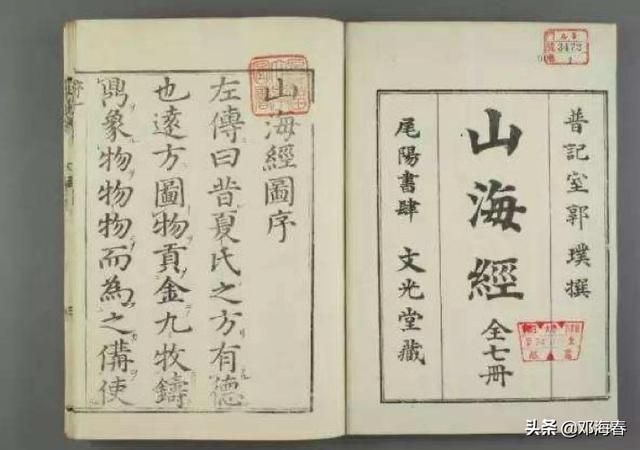 晋記室郭璞撰
山海經 全七冊
尾陽書肆 文光堂藏
3472
1
山海經圖序
左傳曰昔夏氏之方有德
也遠方圖物貢金九牧鑄
鼎象物物物而為之備使
头条 @邓海春